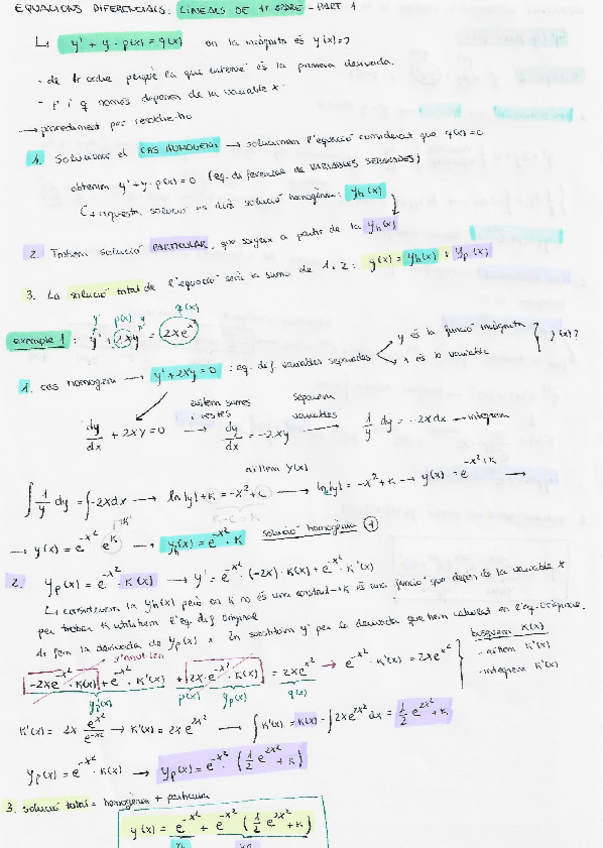 EQUACIONS DIFERENCIALS: LINEALS DE 1r ORDRE - PART 1
↳ y' + y · p(x) = q(x) on la incògnita és y(x)=?
· de 1r ordre perquè la que intervé és la primera derivada.
- p i q només depenen de la variable x
→ procediment per resoldre-ho
1. Solucionar el CAS HOMOGENI → solucionem l'equació considerant que q(x) = 0
obtenim y' + y · p(x) = 0 (eq. diferencial de VARIABLES SEPARADES)
(→ aquesta solució es dirà solució homogènia: yh(x)
2. Trobem solució PARTICULAR, que sorgeix a partir de la yh(x)
3. La solució total de l'equació serà la suma de 1 + 2: y(x) = yh(x) + yp(x)
y' p(x) y q(x)
exemple 1: y' + 2xy = 2xe^x²
y és la funció incògnita
x és la variable
y(x)?
1. cas homogeni → y' + 2xy = 0 : eq. dif. variables separades
aïllem sumes i restes
separem variables
dy/dx + 2xy = 0 → dy/dx = -2xy → 1/y dy = -2xdx → integrem
aïllem y(x)
∫ 1/y dy = ∫ -2xdx → ln|y| + K = -x² + C → ln|y| = -x² + K → y(x) = e^(-x²+K) →
K - C = K
→ y(x) = e^-x² · e^K → yh(x) = e^-x² · K solució homogènia
2. yp(x) = e^-x² · K(x) → y' = e^-x² · (-2x) · K(x) + e^-x² · K'(x)
↳ considerem la yh(x) però on K no és una constant → K és una funció que depèn de la variable x
per trobar K utilitzem l'eq. dif original
1r fem la derivada de yp(x) i 2n substituïm y' per la derivada que hem calculat en l'eq. original.
s'anul·len
-2xe^-x² · K(x) + e^-x² · K'(x) + 2x · e^-x² · K(x) = 2xe^x² → e^-x² · K'(x) = 2xe^x²
y'p(x) p(x) yp(x) q(x)
busquem K(x)
· aïllem K'(x)
· integrem K'(x)
K'(x) = 2x e^x²/e^-x² → K'(x) = 2x e^2x² → ∫ K'(x) = K(x) = ∫ 2xe^2x² dx = 1/2 e^2x² + K
yp(x) = e^-x² · K(x) → yp(x) = e^-x² · (1/2 e^2x² + K)
3. solució total = homogènia + particular
y(x) = e^-x² + e^-x² (1/2 e^2x² + K)
yh yp